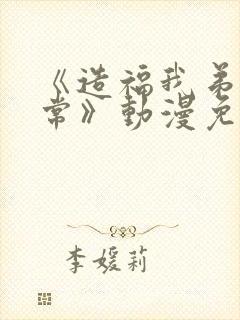 《造福我弟
常》動漫免
李媛莉